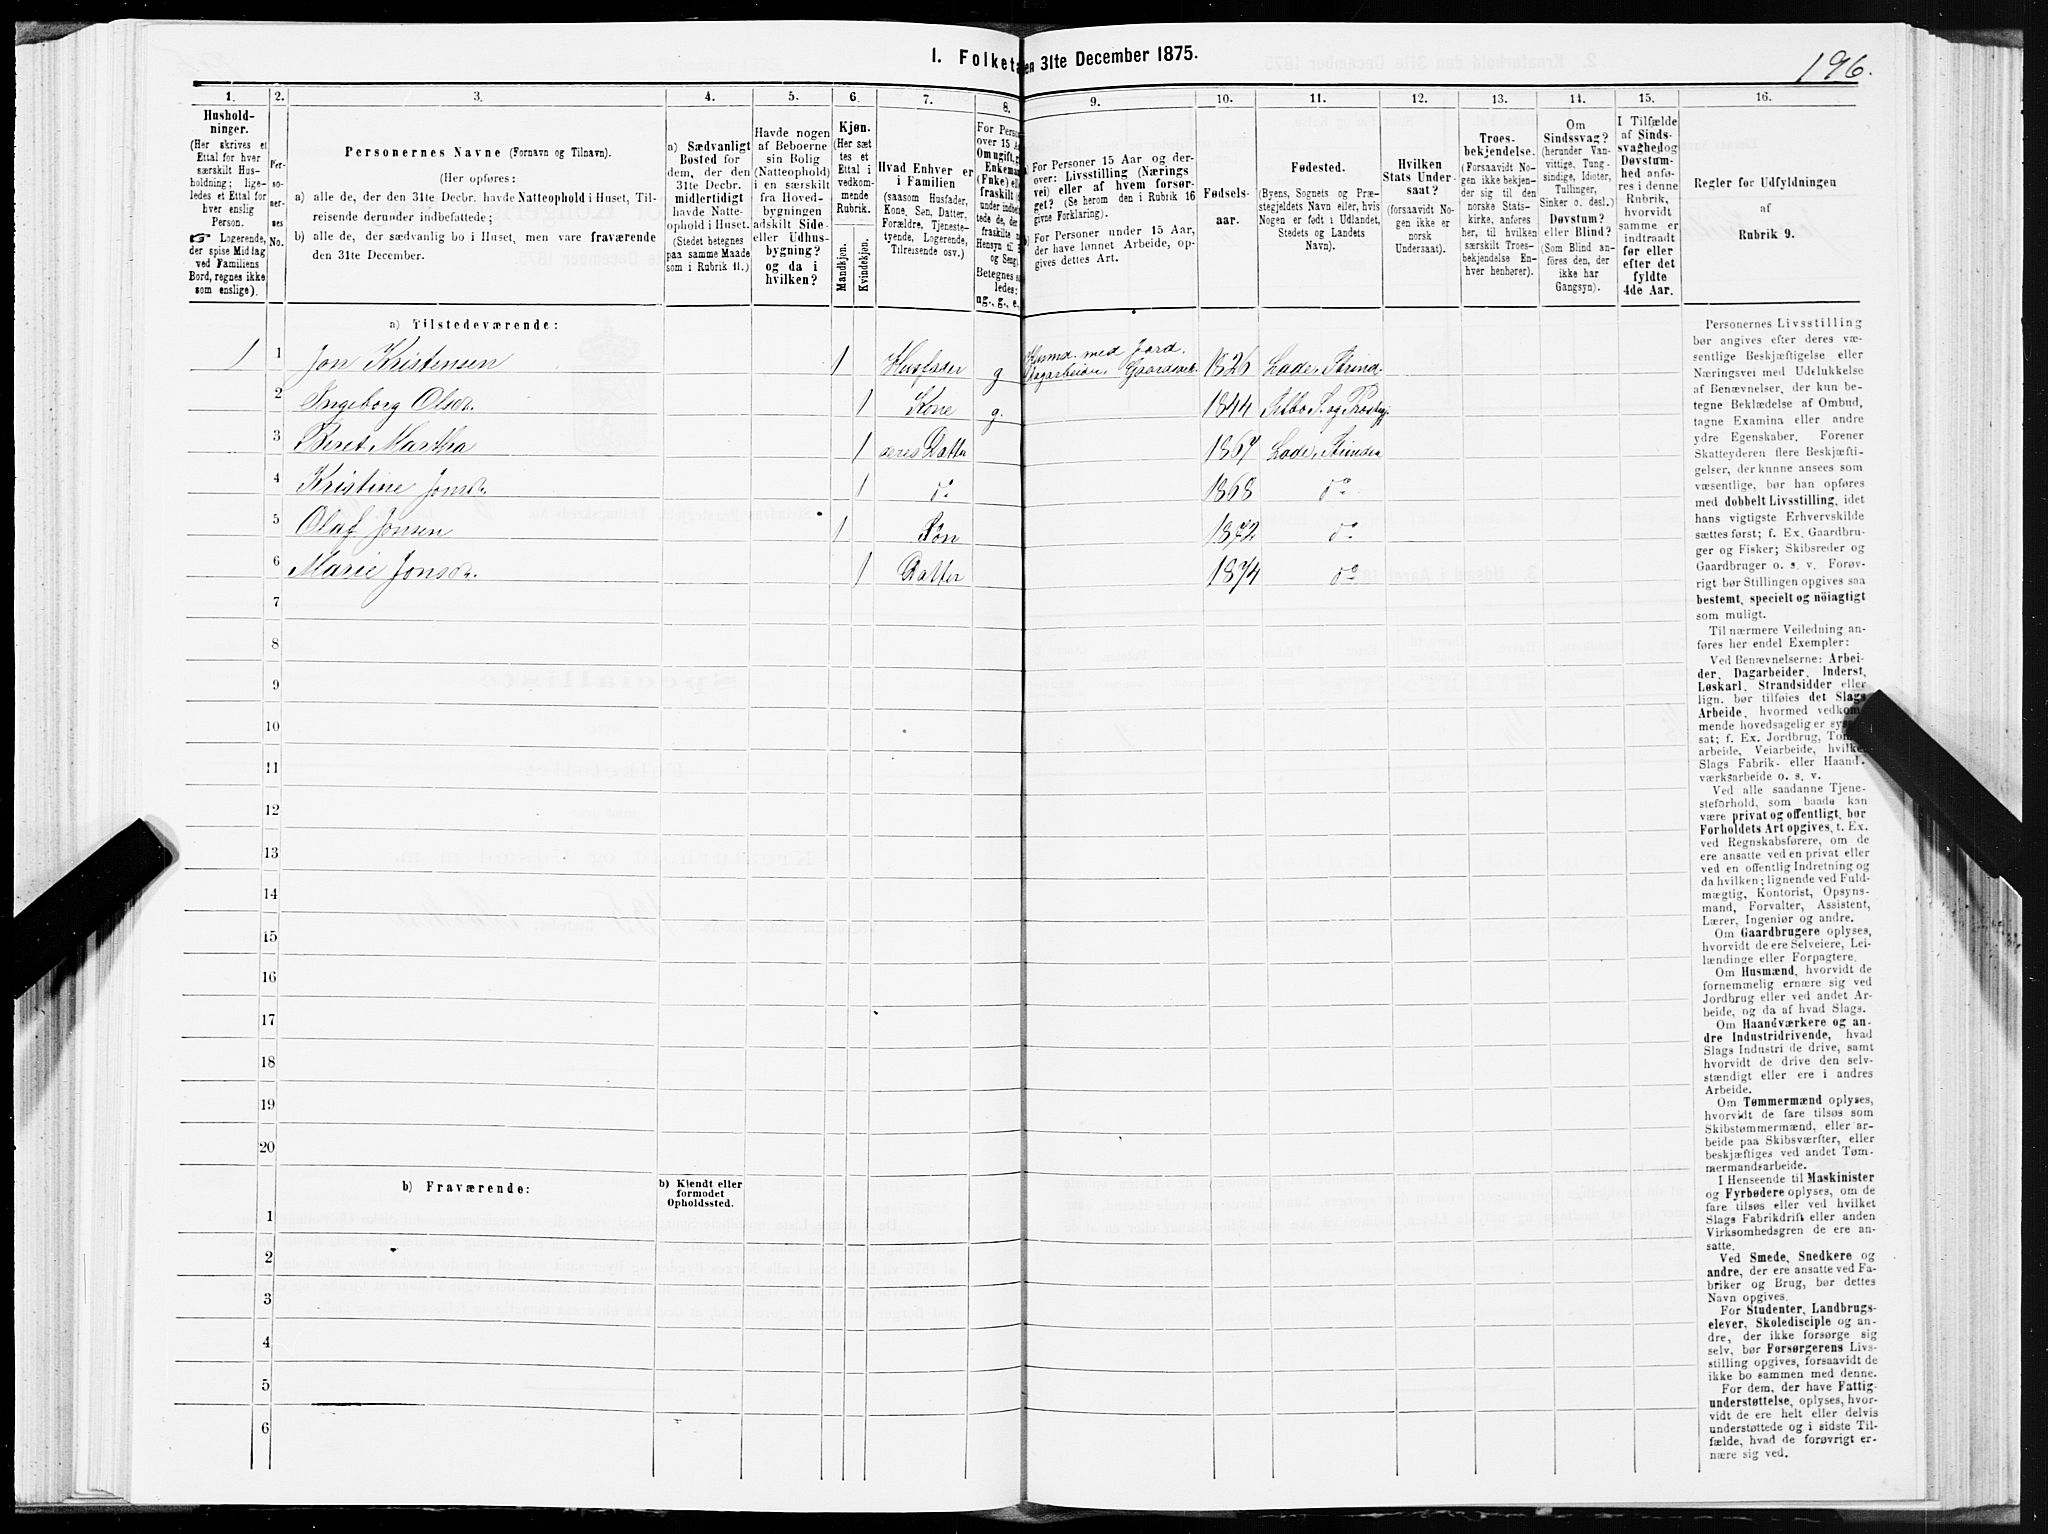 1. Folketæ en 31te December 1875.
196.
1. 2. 3. 4. 5. 6. 7. 8. 9. 10. 11. 12. 13. 14. 15. 16.
Hushold-
ninger.
(Her skrives et
Ettal for hver
særskilt Hus-
holdning; lige-
ledes et Ettal for
hver enslig
Person.
☞ Logerende,
der spise Middag
ved Familiens
Bord, regnes ikke
som enslige).
Per-
so-
ner-
nes
No.
Personernes Navne (Fornavn og Tilnavn).
(Her opføres:
a) alle de, der den 31te Decbr. havde Natteophold i Huset, Til-
reisende derunder indbefattede;
b) alle de, der sædvanlig bo i Huset, men vare fraværende
den 31te December.
a) Sædvanligt
Bosted for
dem, der den
31te Decbr.
midlertidigt
havde Natte-
ophold i Huset.
(Stedet betegnes
paa samme Maade
som i Rubrik 11.)
Havde nogen
af Beboerne
sin Bolig
(Natteophold)
i en særskilt
fra Hoved-
bygningen
adskilt Side-
eller Udhus-
bygning?
og da i
hvilken?
Kjøn.
(Her sæt
tes et
Ettal i
vedkom-
mende
Rubrik.
Mandkjøn.
Kvindekjøn.
Hvad Enhver er
i Familien
(saasom Husfader,
Kone, Søn, Datter,
Forældre, Tjeneste-
tyende, Logerende,
Tilreisende osv.)
For Person
over 15 Aa
Om ugift, g
Enkeman
(Enke) el
fraskilt
under indbe
tede de, de
fraskilte
Hensyn til B
og Seng
Betegnes s
ledes:
ug., g., e.
a) For Personer 15 Aar og der-
over: Livsstilling (Nærings
vei) eller af hvem forsør-
get? (Se herom den i Rubrik 16
givne Forklaring).
b) For Personer under 15 Aar,
der have lønnet Arbeide, op-
gives dettes Art.
Fødsels-
aar.
Fødested.
(Byens, Sognets og Præ-
stegjeldets Navn eller, hvis
Nogen er født i Udlandet,
Stedets og Landets
Navn).
Hvilken
Stats Under-
saat?
(forsaavidt No-
gen ikke er
norsk
Undersaat).
Troes-
bekjendelse.
(Forsaavidt No-
gen ikke bekjen-
der sig til den
norske Stats-
kirke, anføres
her, til hvilken
særskilt Troes-
bekjendelse En-
hver henhører).
Om
Sindssvag?
(herunder Van-
vittige, Tung-
sindige, Idioter,
Tullinger,
Sinker o. desl.)
Døvstum?
eller Blind?
(Som Blind an-
føres den, der
ikke har
Gangsyn).
I Tilfælde
af Sinds-
svaghedog
Døvstum-
hed anfø-
res i denne
Rubrik,
hvorvidt
samme er
indtraadt
før eller
efter det
fyldte
4de Aar.
Regler for Udfyldningen
af
Rubrik 9.
a) Tilstedeværende:
1 1 Jon Kristensen 1 Husfader g Husmd. med Jord. 1826 Lade, Strind.
2 Ingeborg Olsdr. 1 Kone g. 1844 Selbo
3 Beret Martha 1 deres Datter 1867 Lade, Strinden
4 Kristine Jonsdr. 1 do 1868 do
5 Olaf Jonsen 1 Søn 1872 do
6 Marie Jonsdr. 1 Datter 1874 do
7
8
9
10
11
12
13
14
15
16
17
18
19
20
b) Fraværende:
b) Kjendt eller
formodet
Opholdssted.
1
2
3
4
5
6
Personernes Livsstilling
bør angives efter deres væ-
sentlige Beskjæftigelse eller
Næringsvei med Udelukkelse
af Benævnelser, der kun be-
tegne Beklædelse af Ombud,
tagne Examina eller andre
ydre Egenskaber. Forener
Skatteyderen flere Beskjæfti-
gelser, der kunne ansees som
væsentlige, bør han opføres
med dobbelt Livsstilling, idet
hans vigtigste Erhvervskilde
sættes først; f. Ex. Gaardbru-
ger og Fisker; Skibsreder og
Gaardbruger o. s. v. Forøv-
rigt bør Stillingen opgives saa
bestemt, specielt og nöiagtigt
som muligt.
Til nærmere Veiledning an-
føres her endel Exempler:
Ved Benævnelserne: Arbei-
der, Dagarbeider, Inderst,
Løskarl, Strandsidder eller
lign. bør tilføies det Slags
Arbeide, hvormed vedkom-
mende hovedsagelig er syssel-
sat; f. Ex. Jordbrug, Tom
arbeide, Veiarbeide, hvilket
Slags Fabrik- eller Haand-
værksarbeide o. s. v.
Ved alle saadanne Tjene-
steforhold, som baade kan
være privat og offentligt, bør
Forholdets Art opgives, t. Ex.
ved Regnskabsførere, om de
ere ansatte ved en privat eller
ved en offentlig Indretning og
da hvilken; lignende ved Fuld-
mægtig, Kontorist, Opsyns-
mand, Forvalter, Assistent,
Lærer, Ingeniør og andre.
Om Gaardbrugere oplyses,
hvorvidt de ere Selveiere, Lei-
lændinge eller Forpagtere.
Om Husmænd, hvorvidt de
fornemmelig ernære sig ved
Jordbrug eller ved andet Ar-
beide, og da af hvad Slags.
Om Haandværkere og an-
dre Industridrivende, hvad
Slags Industri de drive, samt
hvorvidt de drive den selv-
stændigt eller ere i andres
Arbeide.
Om Tømmermænd oplyses,
hvorvidt de fare tilsøs som
Skibstømmermænd, eller ar-
beide paa Skibsværfter, eller
beskjæftiges ved andet Tøm-
mermandsarbeide.
I Henseende til Maskinister
og Fyrbødere oplyses, om de
fare tilsøs eller ved hvilket
Slags Fabrikdrift eller anden
Virksomhedsgren de ere an-
satte.
Ved Smede, Snedkere og
andre, der ere ansatte ved Fa-
briker og Brug, bør dettes
Navn opgives.
For Studenter, Landbrugs-
elever, Skoledisciple og an-
dre, der ikke forsørge sig
selv, bør Forsørgerens Livs-
stilling opgives, forsaavidt de
ikke bo sammen med denne.
For dem, der have Fattig-
understøttelse, oplyses, hvor-
vidt de ere helt eller delvis
understøttede og i sidste Til-
fælde, hvad de forøvrigt er-
nære sig ved.